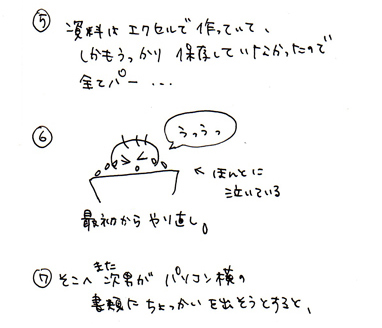 ⑤ 資料はエクセルで作っていて、
しかもうっかり保存していなかったので
全てパー...
⑥
うっうっ
← ほんとに
泣いている
最初からやり直し。
⑦ そこへまた次男がパソコン横の
書類にちょっかいを出そうとすると、